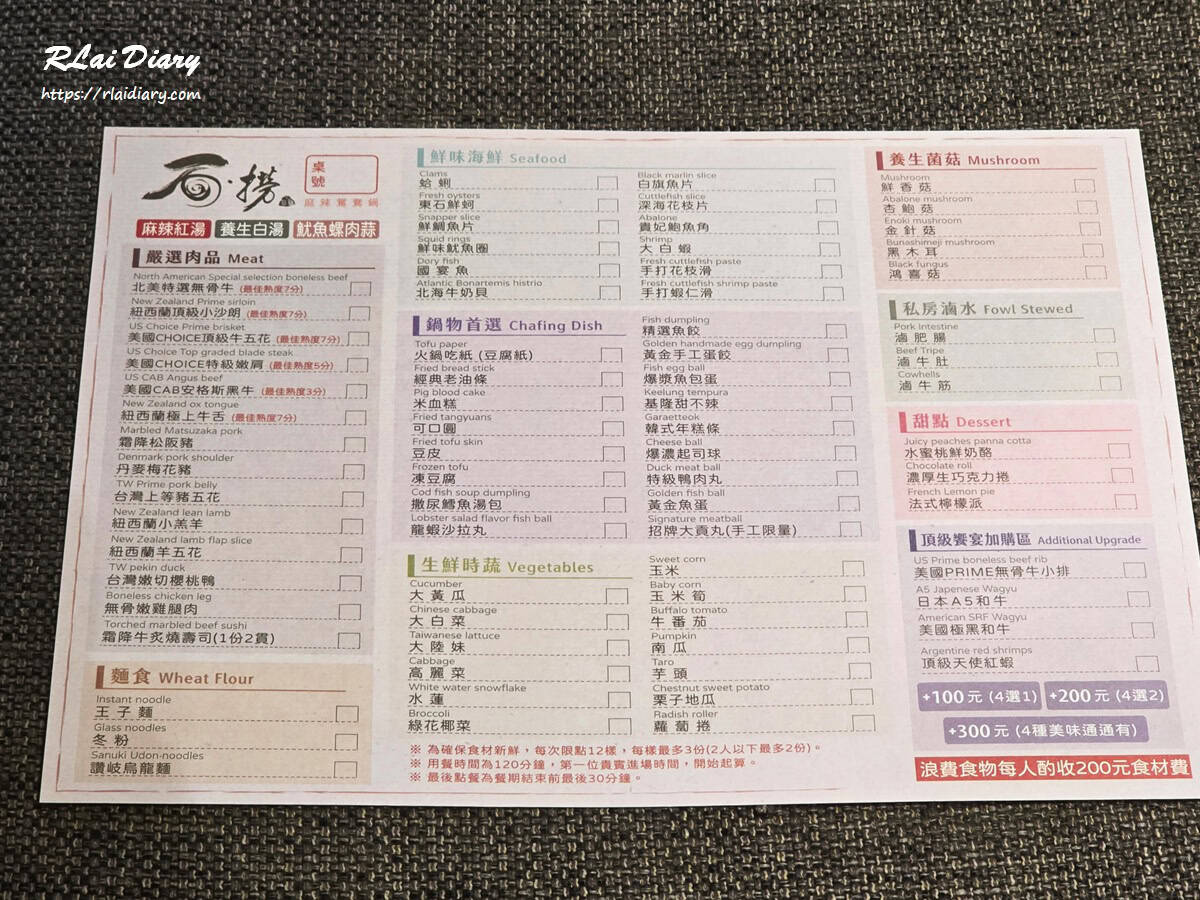 RLai Diary
https://rlaidiary.com
石·撈
桌號
麻辣鴛鴦鍋
麻辣紅湯 養生白湯 魷魚螺肉蒜
嚴選肉品 Meat
North American Special selection boneless beef
北美特選無骨牛 (最佳熟度7分)
New Zealand Prime sirloin
紐西蘭頂級小沙朗 (最佳熟度7分)
US Choice Prime brisket
美國CHOICE頂級牛五花 (最佳熟度7分)
US Choice Top graded blade steak
美國CHOICE特級嫩肩 (最佳熟度5分)
US CAB Angus beef
美國CAB安格斯黑牛 (最佳熟度3分)
New Zealand ox tongue
紐西蘭極上牛舌 (最佳熟度7分)
Marbled Matsuzaka pork
霜降松阪豬
Denmark pork shoulder
丹麥梅花豬
TW Prime pork belly
台灣上等豬五花
New Zealand lean lamb
紐西蘭小羔羊
New Zealand lamb flap slice
紐西蘭羊五花
TW pekin duck
台灣嫩切櫻桃鴨
Boneless chicken leg
無骨嫩雞腿肉
Torched marbled beef sushi
霜降牛炙燒壽司(1份2貫)
麵食 Wheat Flour
Instant noodle
王子麵
Glass noodles
冬粉
Sanuki Udon-noodles
讚岐烏龍麵
鮮味海鮮 Seafood
Clams
蛤蜊
Fresh oysters
東石鮮蚵
Snapper slice
鮮鯛魚片
Squid rings
鮮味魷魚圈
Dory fish
國宴魚
Atlantic Bonartemis histrio
北海牛奶貝
Black marlin slice
白旗魚片
Cuttlefish slice
深海花枝片
Abalone
貴妃鮑魚角
Shrimp
大白蝦
Fresh cuttlefish paste
手打花枝滑
Fresh cuttlefish shrimp paste
手打蝦仁滑
鍋物首選 Chafing Dish
Tofu paper
火鍋吃紙 (豆腐紙)
Fried bread stick
經典老油條
Pig blood cake
米血糕
Fried tangyuans
可口圓
Fried tofu skin
豆皮
Frozen tofu
凍豆腐
Cod fish soup dumpling
撒尿鱈魚湯包
Lobster salad flavor fish ball
龍蝦沙拉丸
Fish dumpling
精選魚餃
Golden handmade egg dumpling
黃金手工蛋餃
Fish egg ball
爆漿魚包蛋
Keelung tempura
基隆甜不辣
Garaetteok
韓式年糕條
Cheese ball
爆濃起司球
Duck meat ball
特級鴨肉丸
Golden fish ball
黃金魚蛋
Signature meatball
招牌大貢丸(手工限量)
生鮮時蔬 Vegetables
Cucumber
大黃瓜
Chinese cabbage
大白菜
Taiwanese lattuce
大陸妹
Cabbage
高麗菜
White water snowflake
水蓮
Broccoli
綠花椰菜
Sweet corn
玉米
Baby corn
玉米筍
Buffalo tomato
牛番茄
Pumpkin
南瓜
Taro
芋頭
Chestnut sweet potato
栗子地瓜
Radish roller
蘿蔔捲
※ 為確保食材新鮮，每次限點12樣，每樣最多3份(2人以下最多2份)。
※ 用餐時間為120分鐘，第一位貴賓進場時間，開始起算。
※ 最後點餐為餐期結束前最後30分鐘。
養生菌菇 Mushroom
Mushroom
鮮香菇
Abalone mushroom
杏鮑菇
Enoki mushroom
金針菇
Bunashimeji mushroom
黑木耳
Black fungus
鴻喜菇
私房滷水 Fowl Stewed
Pork Intestine
滷肥腸
Beef Tripe
滷牛肚
Cowhells
滷牛筋
甜點 Dessert
Juicy peaches panna cotta
水蜜桃鮮奶酪
Chocolate roll
濃厚生巧克力捲
French Lemon pie
法式檸檬派
頂級饗宴加購區 Additional Upgrade
US Prime boneless beef rib
美國PRIME無骨牛小排
A5 Japenese Wagyu
日本A5和牛
American SRF Wagyu
美國極黑和牛
Argentine red shrimps
頂級天使紅蝦
+100元 (4選1) +200元 (4選2)
+300元 (4種美味通通有)
浪費食物每人酌收200元食材費